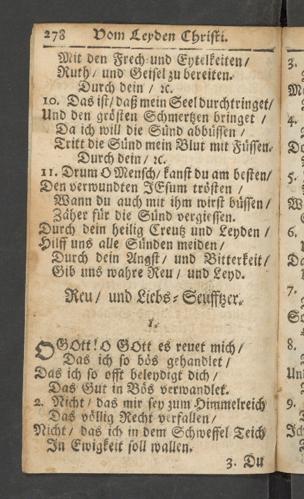 278 Vom Leyden Christi.
Mit den Frech- und Eytelkeiten /
Ruth / und Geisel zu bereiten.
Durch dein / ꝛc.
10. Das ist / daß mein Seel durchtringet /
Und den grösten Schmertzen bringet /
Da ich will die Sünd abbüssen /
Tritt die Sünd mein Blut mit Füssen.
Durch dein / ꝛc.
11. Drum O Mensch / kanst du am besten /
Den verwundten JEsum trösten /
Wann du auch mit ihm wirst büssen /
Zäher für die Sünd vergiessen.
Durch dein heilig Creutz und Leyden /
Hilff uns alle Sünden meiden /
Durch dein Angst / und Bitterkeit /
Gib uns wahre Reu / und Leyd.
Reu / und Liebs-Seufftzer.
1.
O GOtt! O GOtt es reuet mich /
Das ich so bös gehandlet /
Das ich so offt beleydigt dich /
Das Gut in Bös verwandlet.
2. Nicht / das mir sey zum Himmelreich
Das völlig Recht verfallen /
Nicht / das ich in dem Schweffel Teich
In Ewigkeit soll wallen.
3. Du